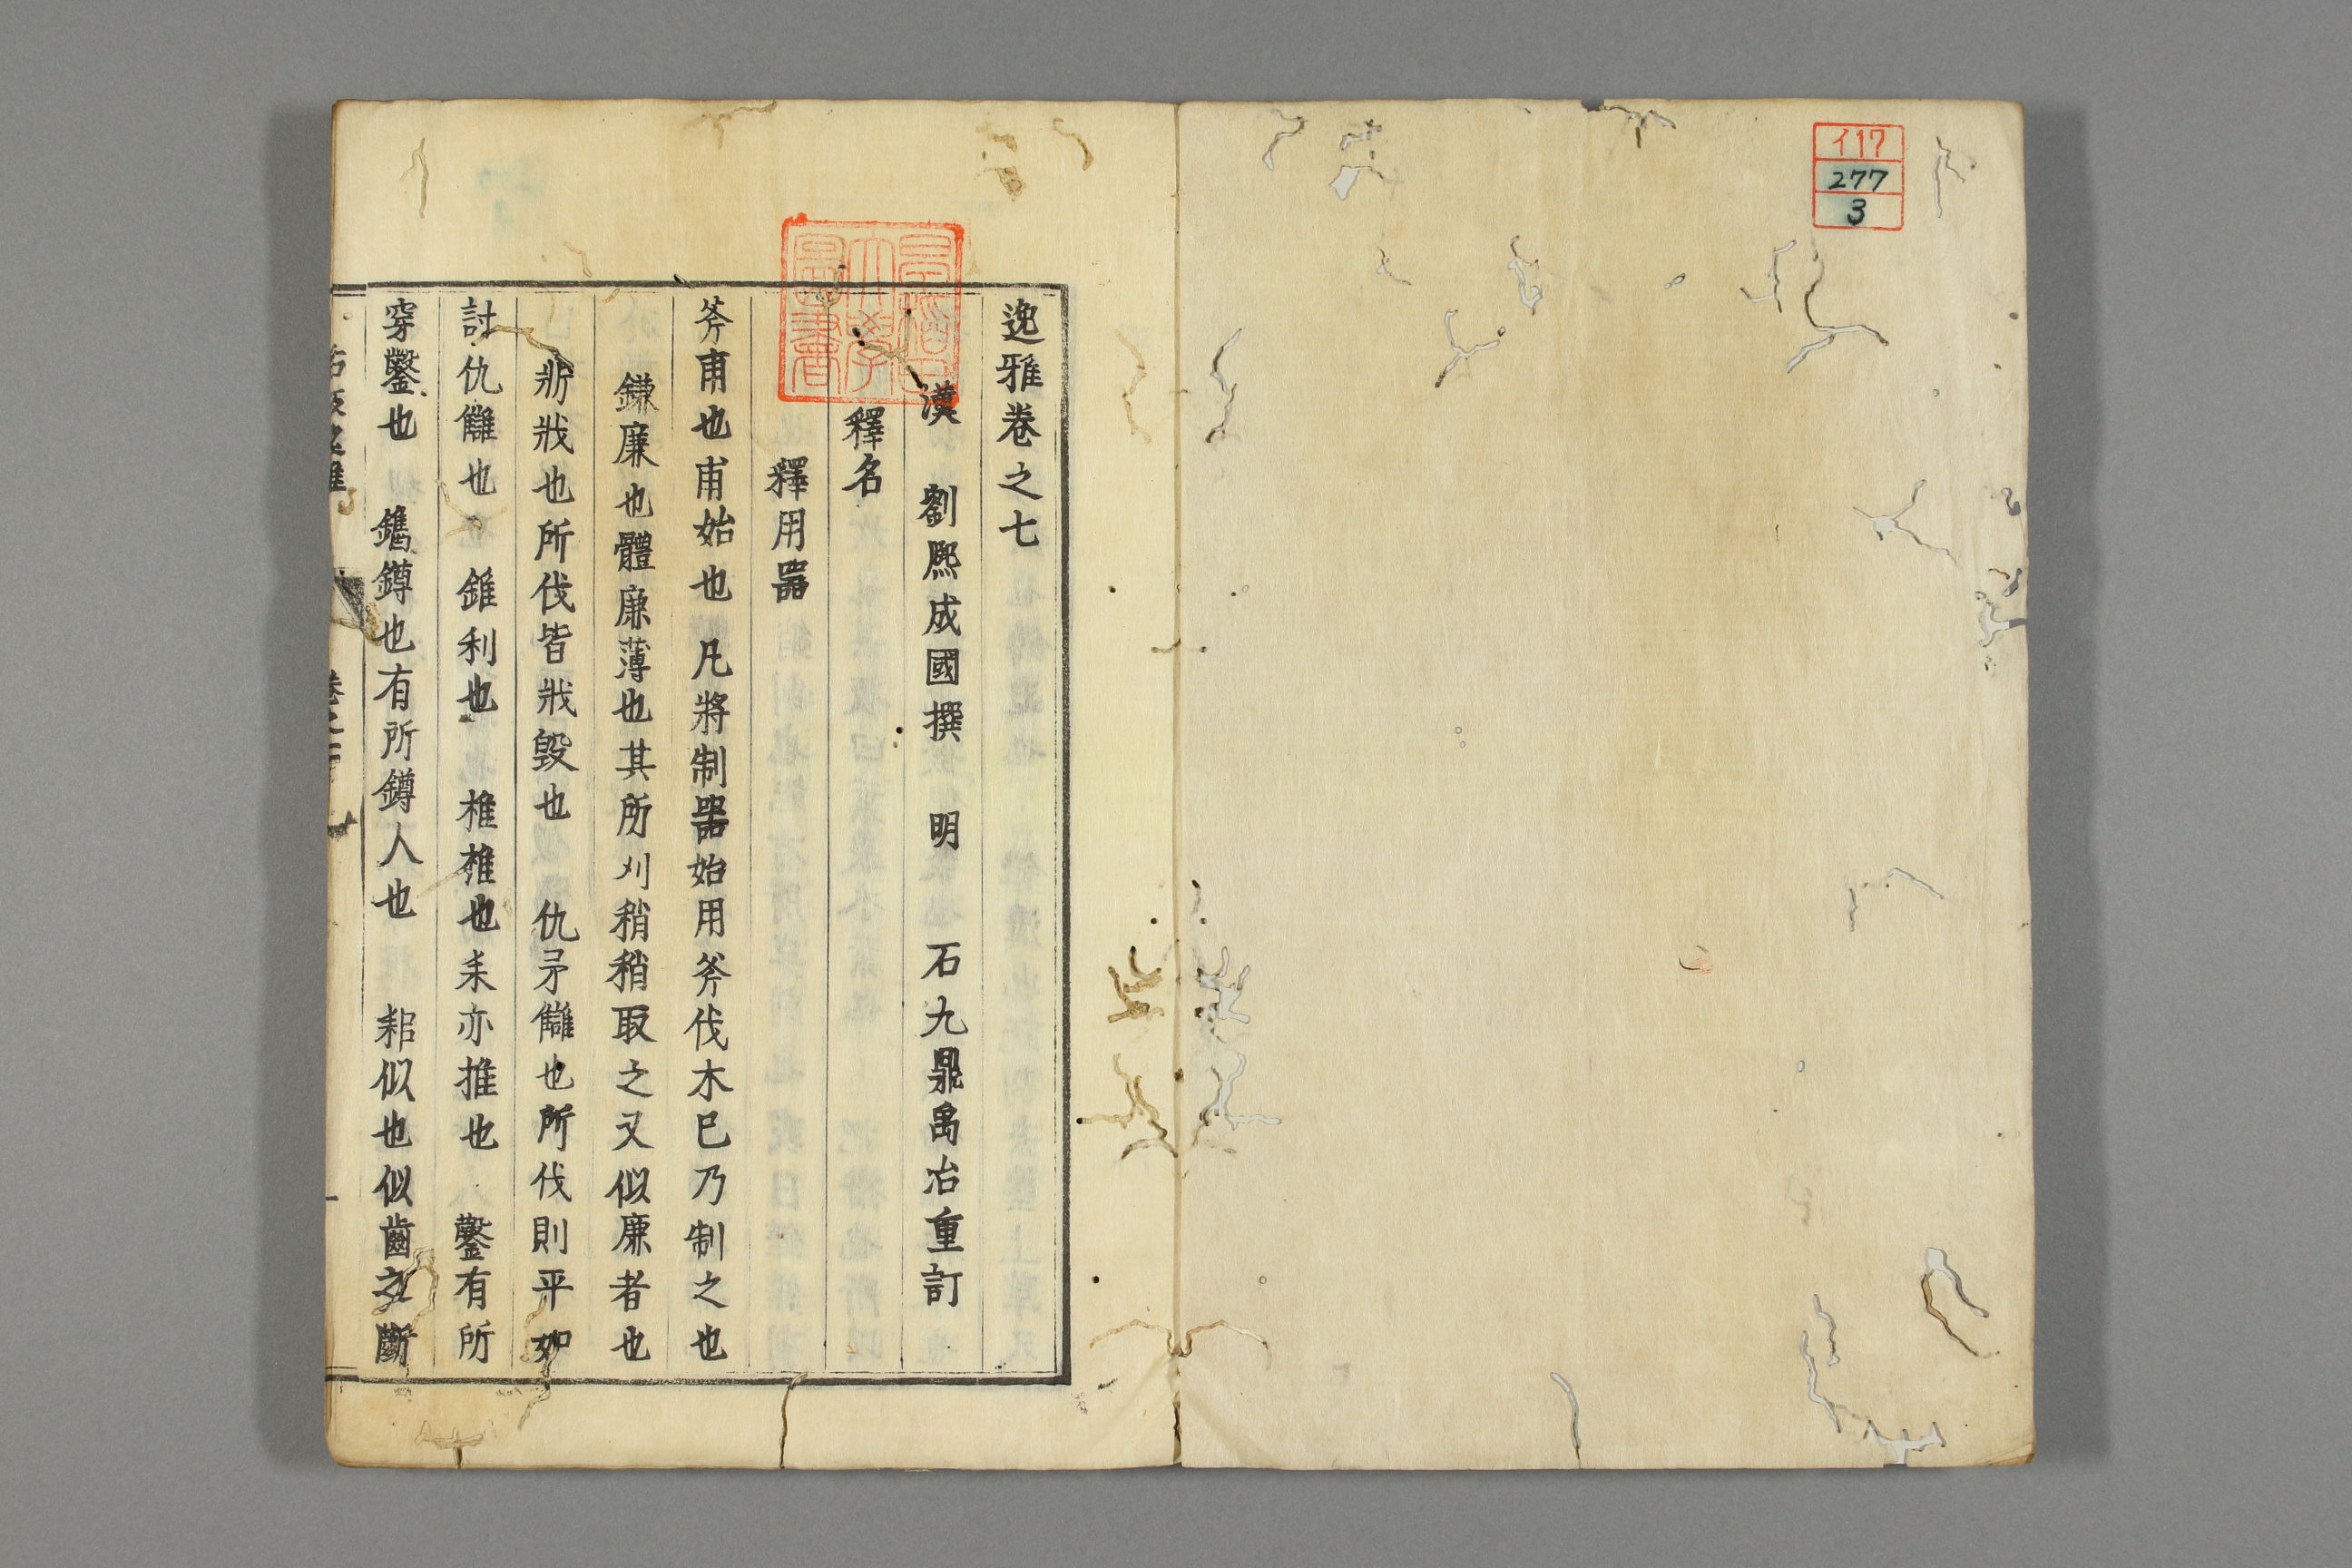 イ17
277
3
逸雅卷之七
漢 劉熈成國撰 明 石九鼎禹治重訂
釋名
釋用器
斧甫也甫始也凡將制器始用斧伐木已乃制之也
鎌廉也體廉薄也其所刈稍稍取之又似廉者也
斨戕也所伐皆戕毀也 仇矛讎也所伐則平如
討仇讎也 錐利也 椎椎也耒亦推也 鑿有所
穿鑿也 鐫鐏也有所鐏入也 耜似也似齒之斷
早稻田大學圖書